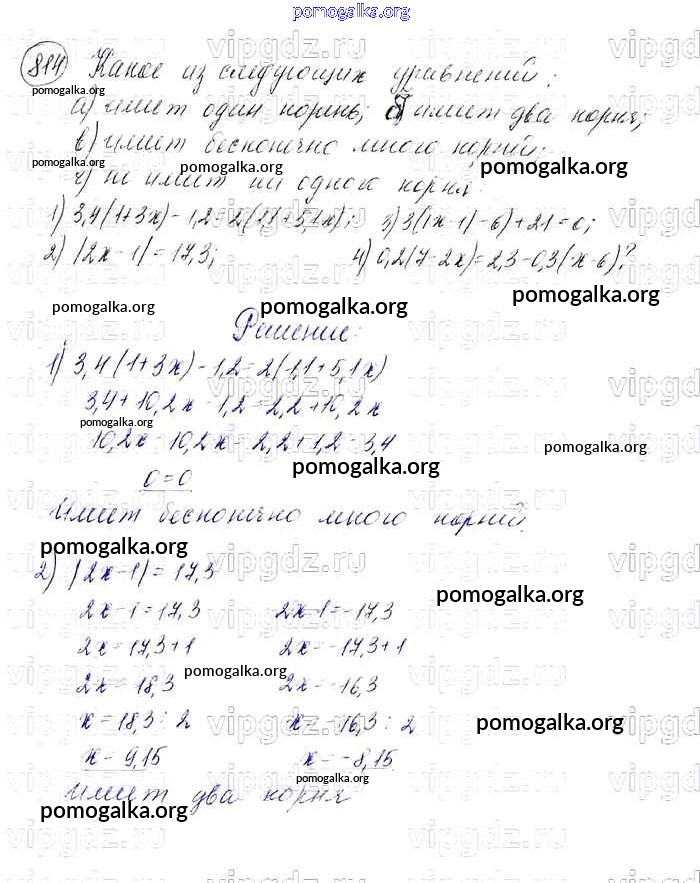 pomogalka.org
814 Какое из следующих уравнений:
а) имеет один корень; б) имеет два корня;
в) имеет бесконечно много корней;
г) не имеет ни одного корня:
1) 3,4(1+3x)-1,2=2(1,1+5,1x); 3) 3(|x-1|-6)+21=0;
2) |2x-1|=17,3; 4) 0,2(7-2x)=2,3-0,3(x-6)?
Решение:
1) 3,4(1+3x)-1,2=2(1,1+5,1x)
3,4+10,2x-1,2=2,2+10,2x
10,2x-10,2x=2,2+1,2-3,4
0=0
Имеет бесконечно много корней.
2) |2x-1|=17,3
2x-1=17,3 2x-1=-17,3
2x=17,3+1 2x=-17,3+1
2x=18,3 2x=-16,3
x=18,3:2 x=-16,3:2
x=9,15 x=-8,15
Имеет два корня